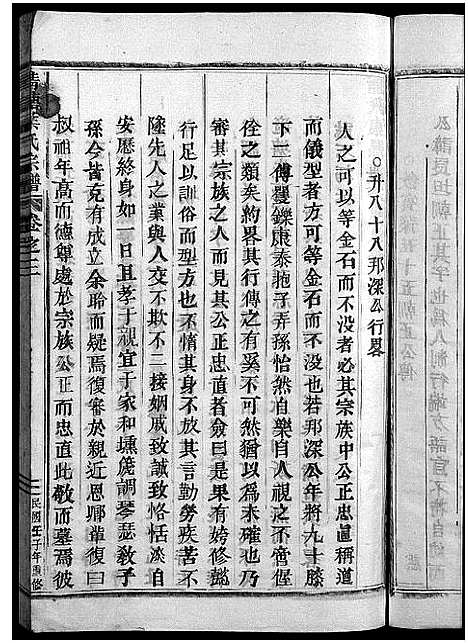 ○升八十八邦深公行畧
人之可以等金石而不没者必其宗族中公正忠直稱道
而儀型者方可等金石而不没也若邦深公年將九十膝
下二傳矍鑠康泰抱子弄孫怡然自樂自人視之不啻偓
佺之類矣約畧其行傳之有奚不可然猶以為未確也乃
審其宗族之人而見其公正忠直者僉曰是果有姱修懿
行足以訓俗而型方也不惰其身不放其言勤勞疾苦不
墜先人之業與人交不欺不二接姻戚致誠致恪恬淡自
安歷終身如一日且孝于親宜于家和壎箎調琴瑟教子
孫今皆克有成立余聆而疑焉復審於親近恩卿輩復曰
叔祖年高而德尊處於宗族公正而忠直此敬而慕焉彼
氏宗譜 卷之二
民國壬子年重修